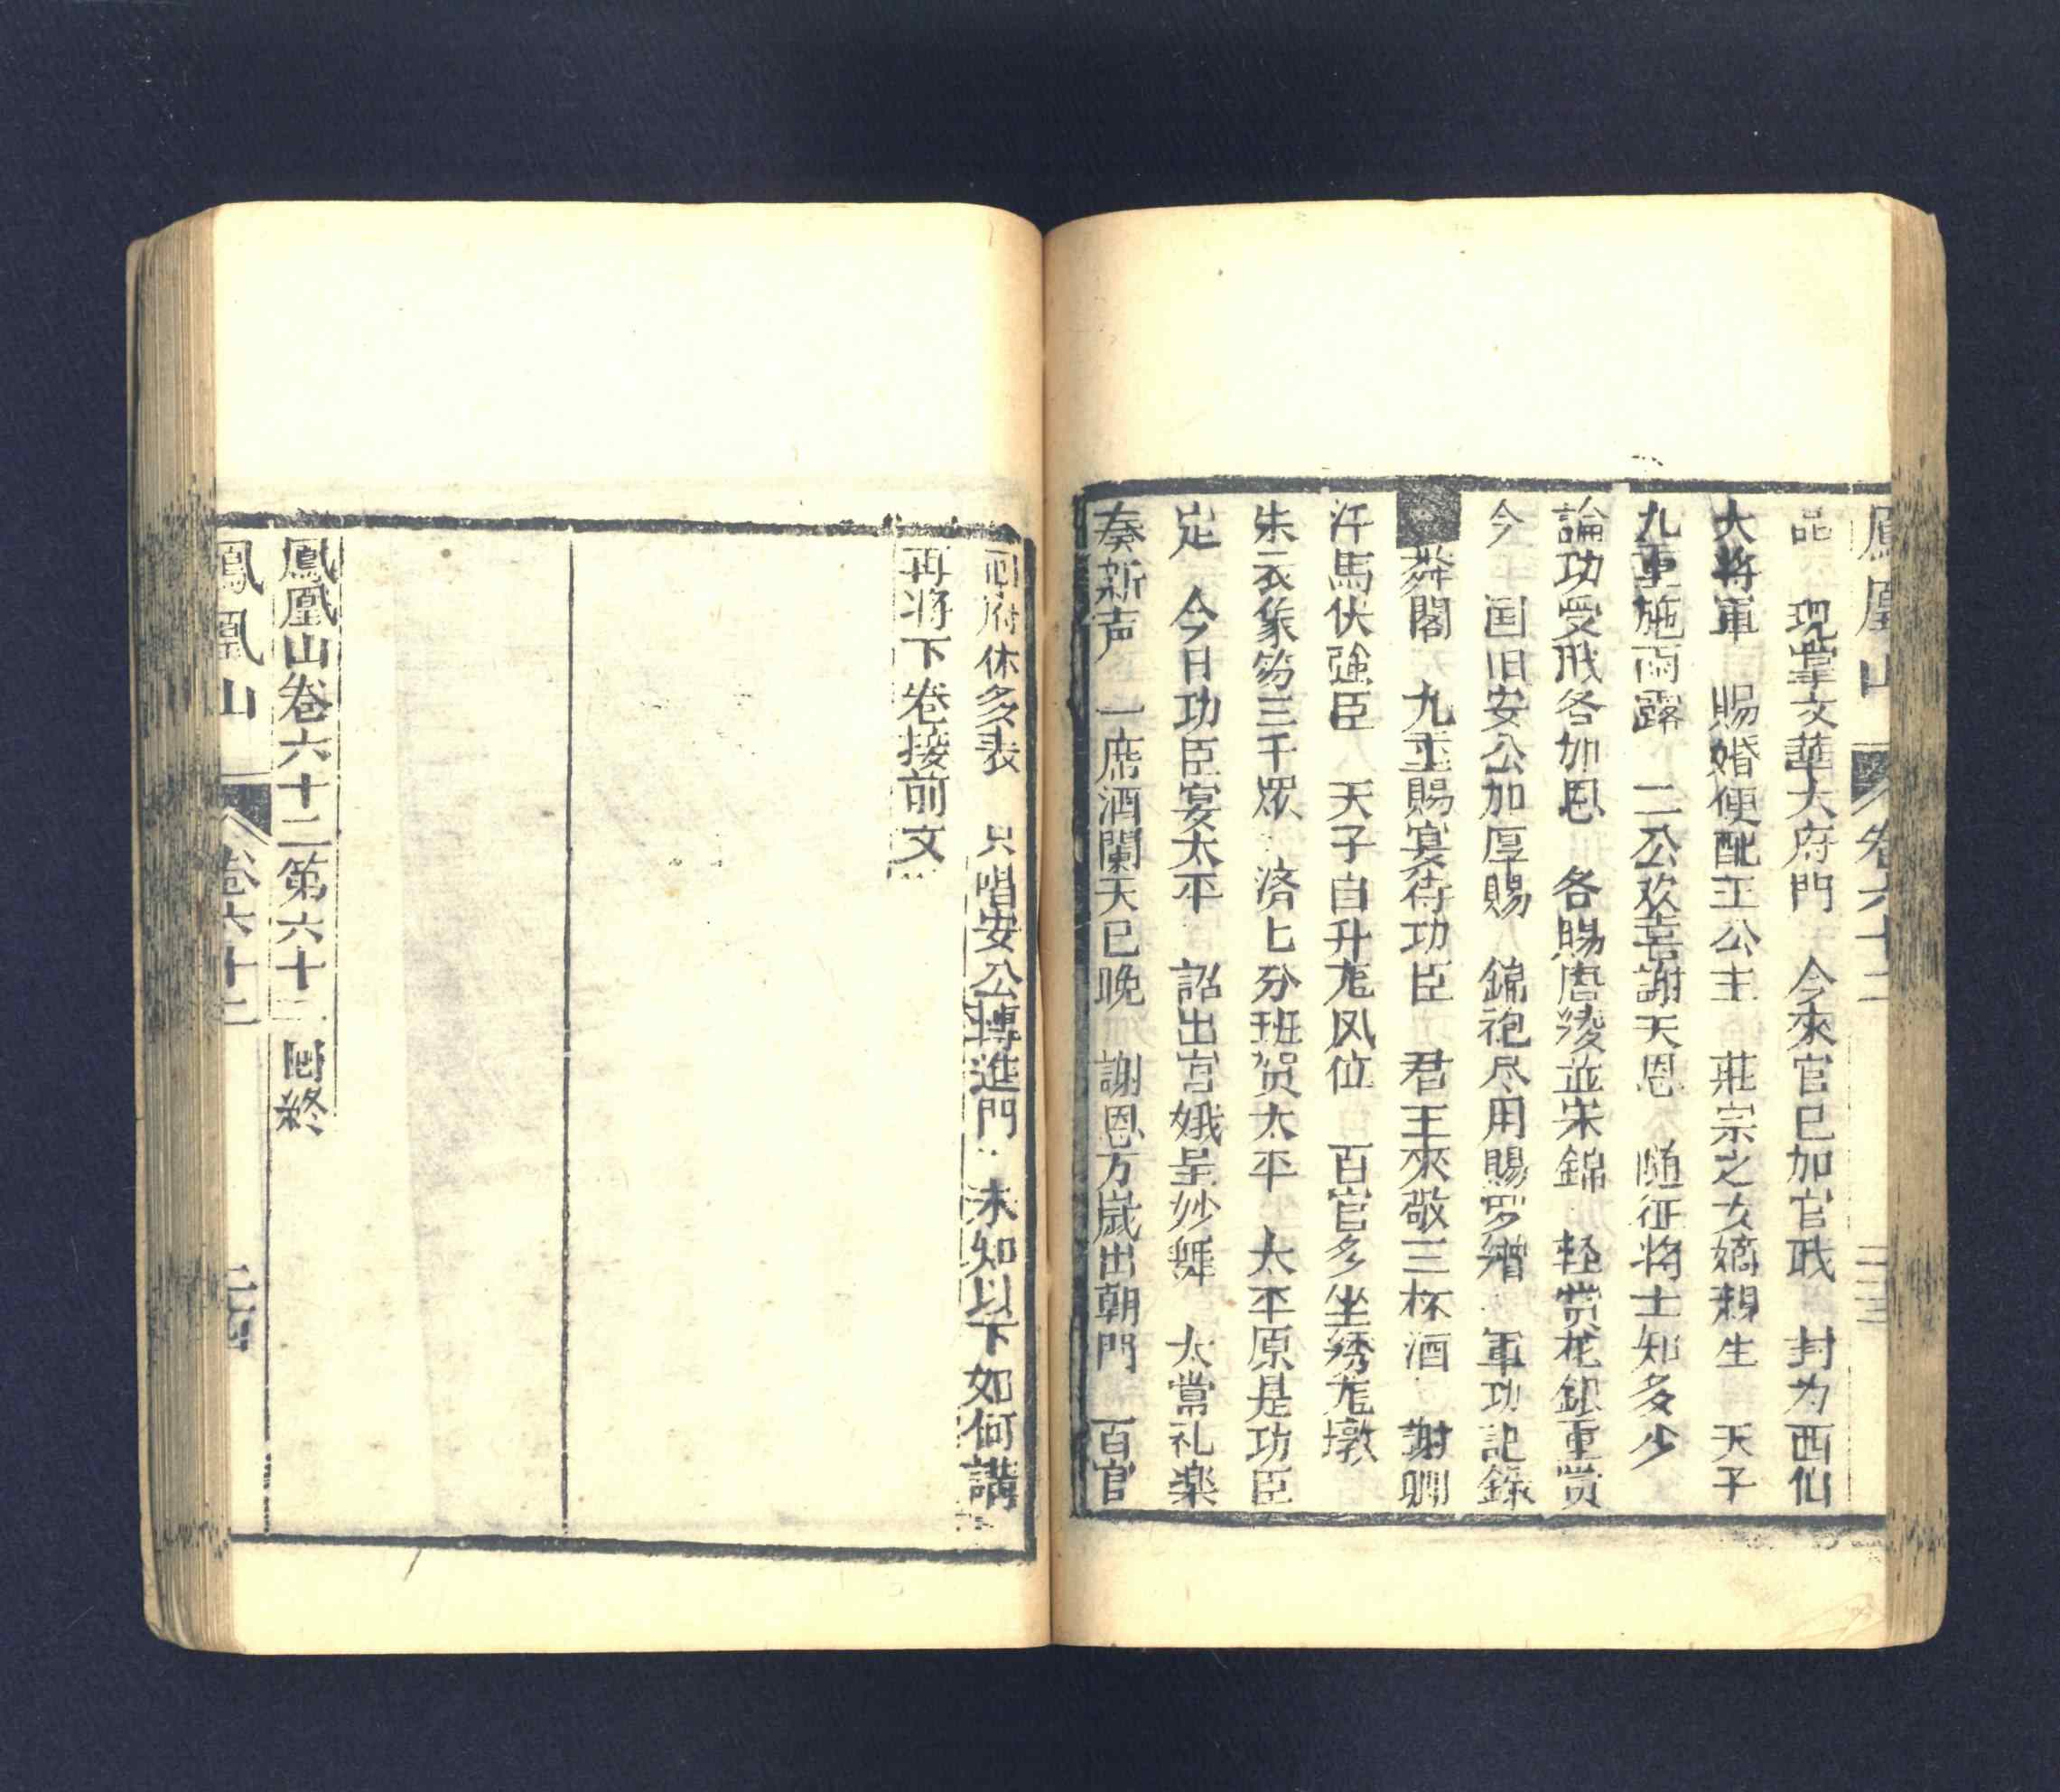 鳳凰山 卷六十二 二十三
品 現掌文華大府門 今來官已加官职 封为西仙
大将軍 賜婚便配王公主 莊宗之女嫡親生 天子
九重施雨露 二公欢喜謝天恩 随征将士知多少
論功受职各加恩 各賜唐绫並宋錦 輕赏花銀重赏
今 国旧安公加厚賜 錦袍尽用賜罗繒 軍功記錄
閣 九重賜宴待功臣 君王來敬三杯酒 謝卿
汗馬伏強臣 天子自升龙凤位 百官多坐绣龙墩
朱衣象笏三千眾 済匕分班贺太平 太平原是功臣
定 今日功臣宴太平 詔出宮娥呈妙舞 太常礼楽
奏新声 一席酒闌天已晚 謝恩万歲出朝門 百官
回府休多表 只唱安公轉進門 未知以下如何講
再将下卷接前文
鳳凰山卷六十二第六十二回終
鳳凰山 卷六十二 二十四